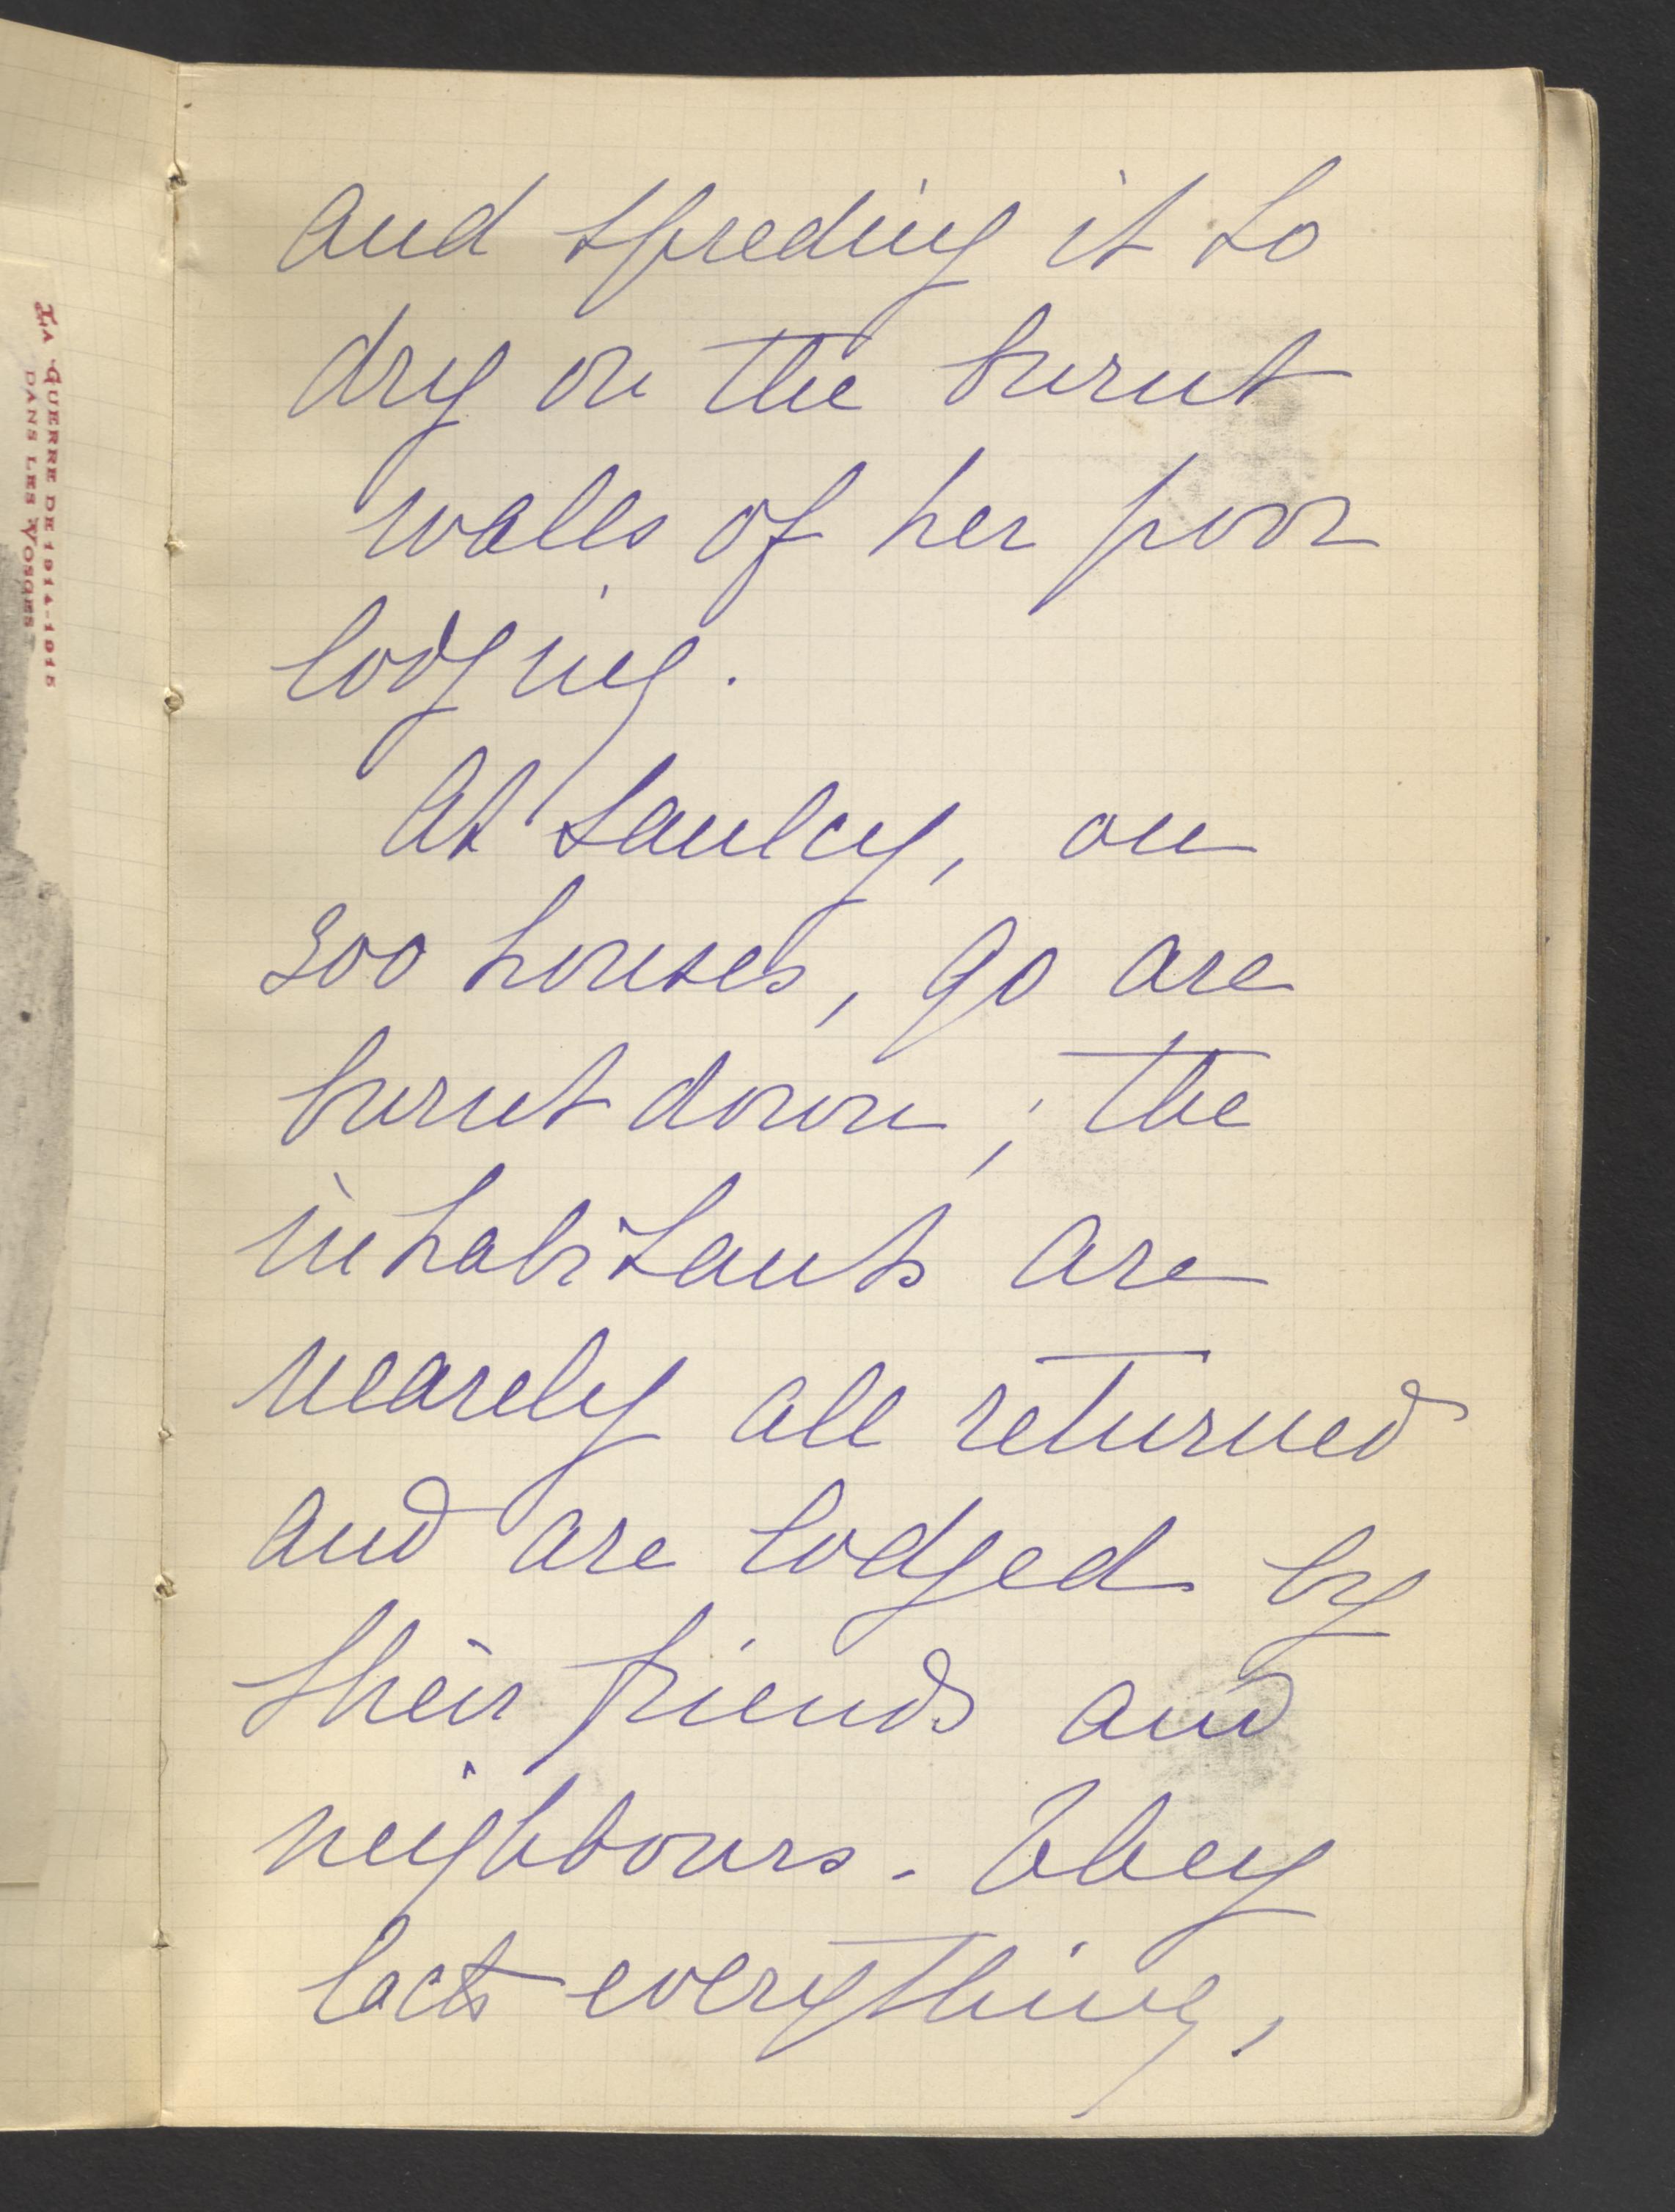 LA GUERRE DE 1914-1915
DANS LES VOSGES
and spreding it to
dry on the burnt
walls of her poor
lodging.
At Saulcy, on
300 houses, 90 are
burnt down ; the
inhabitants are
nearely all returned
and are lodged by
their friends and
neighbours. They
lack everything,